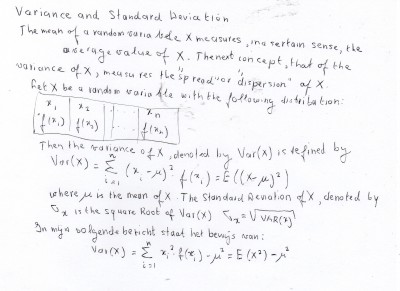 Variance and Standard Deviation
The mean of a random variable X measures, in a sertain sense, the
average value of X. The next concept, that of the
variance of X, measures the "spread" or "dispersion" of X.
Let X be a random variable with the following distribution:
x₁ | x₂ | . . . | xₙ
f(x₁) | f(x₂) | . . . | f(xₙ)
Then the variance of X, denoted by Var(X) is defined by
Var(X) = Σ_{i=1}^{n} (xᵢ - μ)² f(xᵢ) = E((X-μ)²)
where μ is the mean of X. The Standard Deviation of X, denoted by
σₓ is the square Root of Var(X) σₓ = √VAR(X)
In mijn volgende bericht staat het bewijs van:
Var(X) = Σ_{i=1}^{n} xᵢ² f(xᵢ) - μ² = E(X²) - μ²